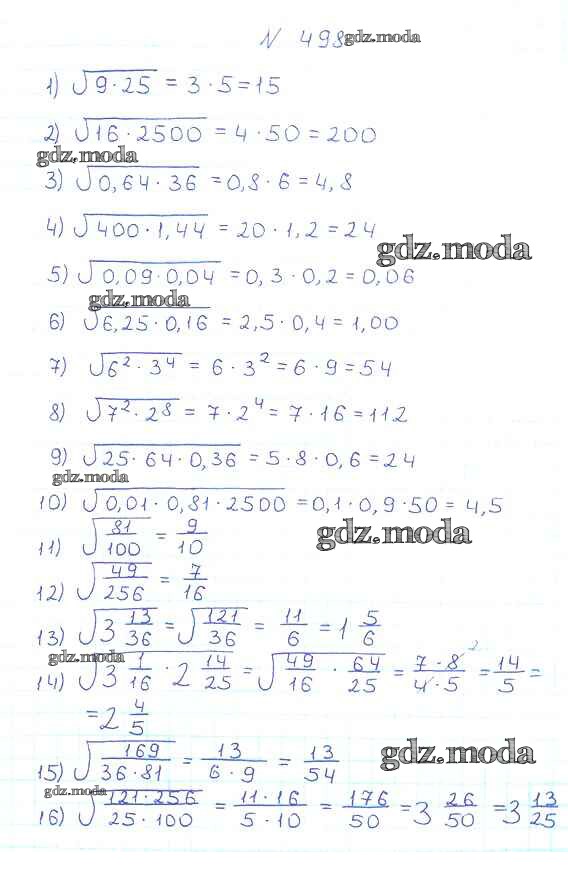 N 498 gdz.moda
1) √(9·25) = 3·5 = 15
2) √(16·2500) = 4·50 = 200
gdz.moda
3) √(0,64·36) = 0,8·6 = 4,8
4) √(400·1,44) = 20·1,2 = 24
gdz.moda
5) √(0,09·0,04) = 0,3·0,2 = 0,06
gdz.moda
6) √(6,25·0,16) = 2,5·0,4 = 1,00
7) √(6²·3⁴) = 6·3² = 6·9 = 54
8) √(7²·2⁸) = 7·2⁴ = 7·16 = 112
9) √(25·64·0,36) = 5·8·0,6 = 24
gdz.moda
10) √(0,01·0,81·2500) = 0,1·0,9·50 = 4,5
gdz.moda
11) √(81/100) = 9/10
12) √(49/256) = 7/16
13) √(3 13/36) = √(121/36) = 11/6 = 1 5/6
gdz.moda
14) √(3 1/16 · 2 14/25) = √(49/16 · 64/25) = (7·8 2)/(4·5) = 14/5 =
= 2 4/5
gdz.moda
15) √(169/(36·81)) = 13/(6·9) = 13/54
gdz.moda
16) √((121·256)/(25·100)) = (11·16)/(5·10) = 176/50 = 3 26/50 = 3 13/25